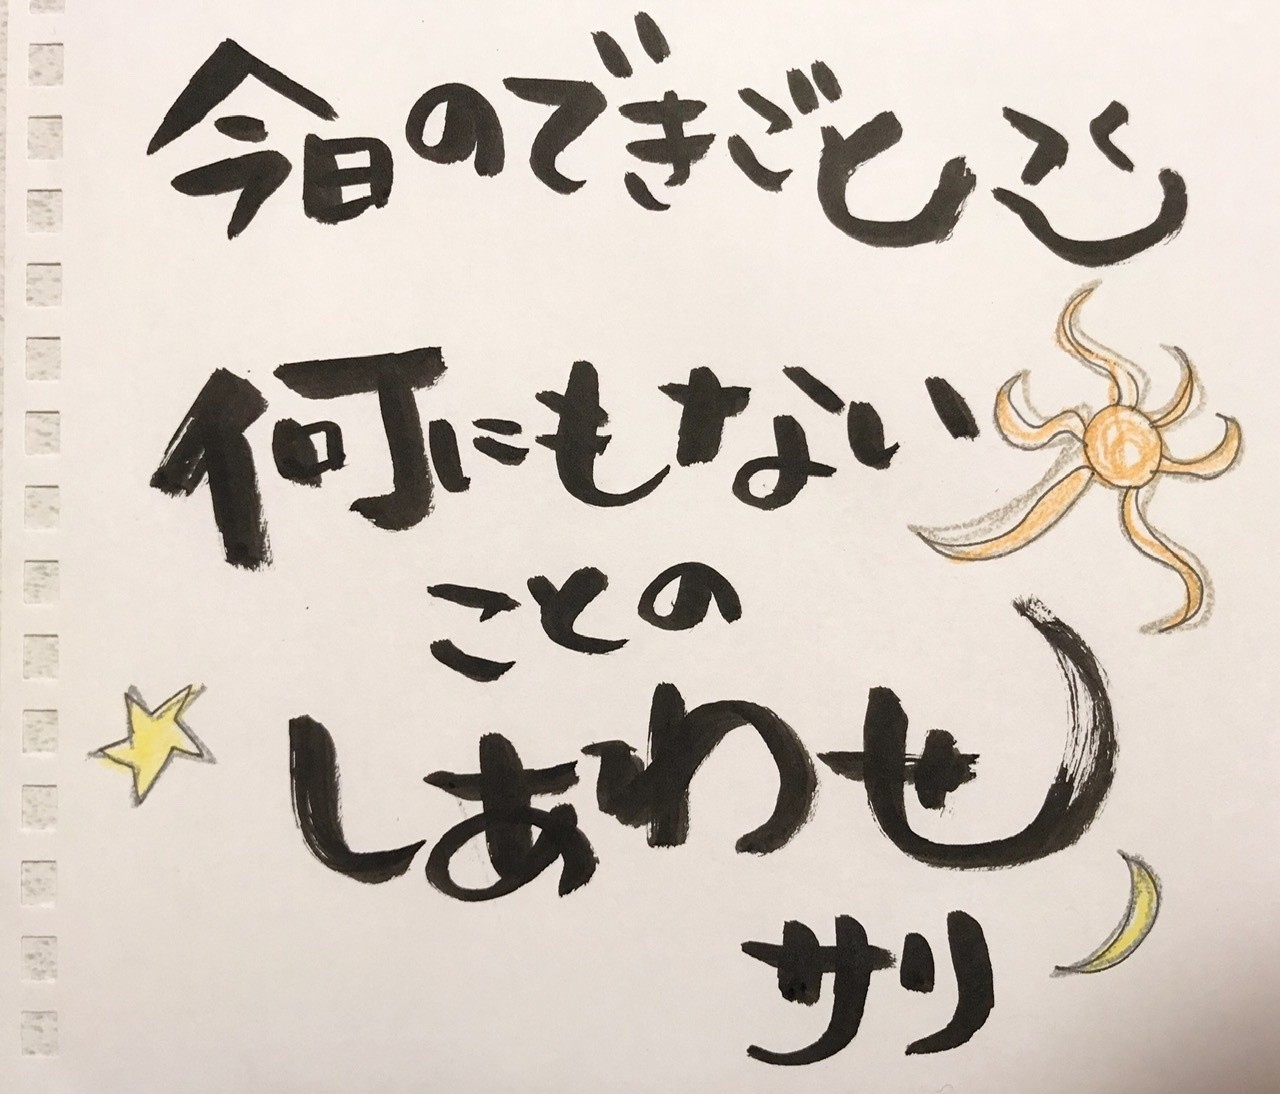 今日のできごと
何にもない
ことの
しあわせ
サリ